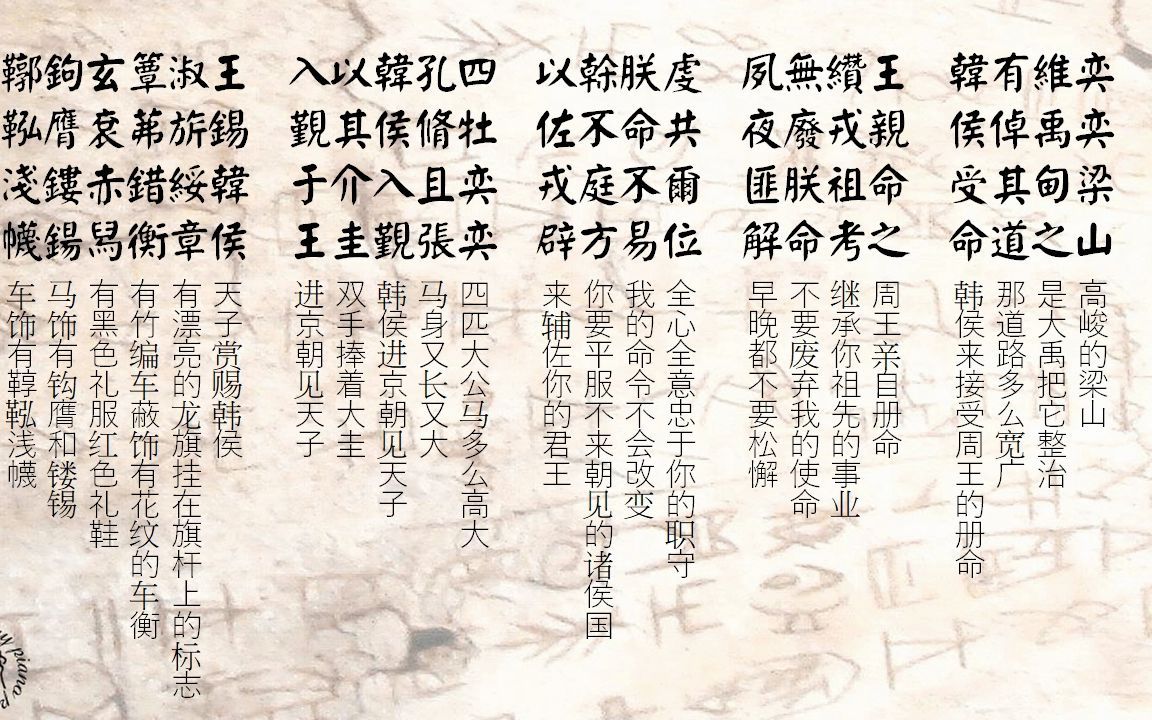 奕奕梁山
高峻的梁山
維禹甸之
是大禹把它整治
有倬其道
那道路多么宽广
韓侯受命
韩侯来接受周王的册命
王親命之
周王亲自册命
纘戎祖考
继承你祖先的事业
無廢朕命
不要废弃我的使命
夙夜匪解
早晚都不要松懈
虔共爾位
全心全意忠于你的职守
朕命不易
我的命令不会改变
榦不庭方
你要平服不来朝见的诸侯国
以佐戎辟
来辅佐你的君王
四牡奕奕
四匹大公马多么高大
孔脩且張
马身又长又大
韓侯入覲
韩侯进京朝见天子
以其介圭
双手捧着大圭
入覲于王
进京朝见天子
王錫韓侯
天子赏赐韩侯
淑旂綏章
有漂亮的龙旗挂在旗杆上的标志
簟茀錯衡
有竹编车蔽饰有花纹的车衡
玄袞赤舄
有黑色礼服红色礼鞋
鉤膺鏤鍚
马饰有钩膺和镂锡
鞹鞃淺幭
车饰有鞟鞃浅幭
piano